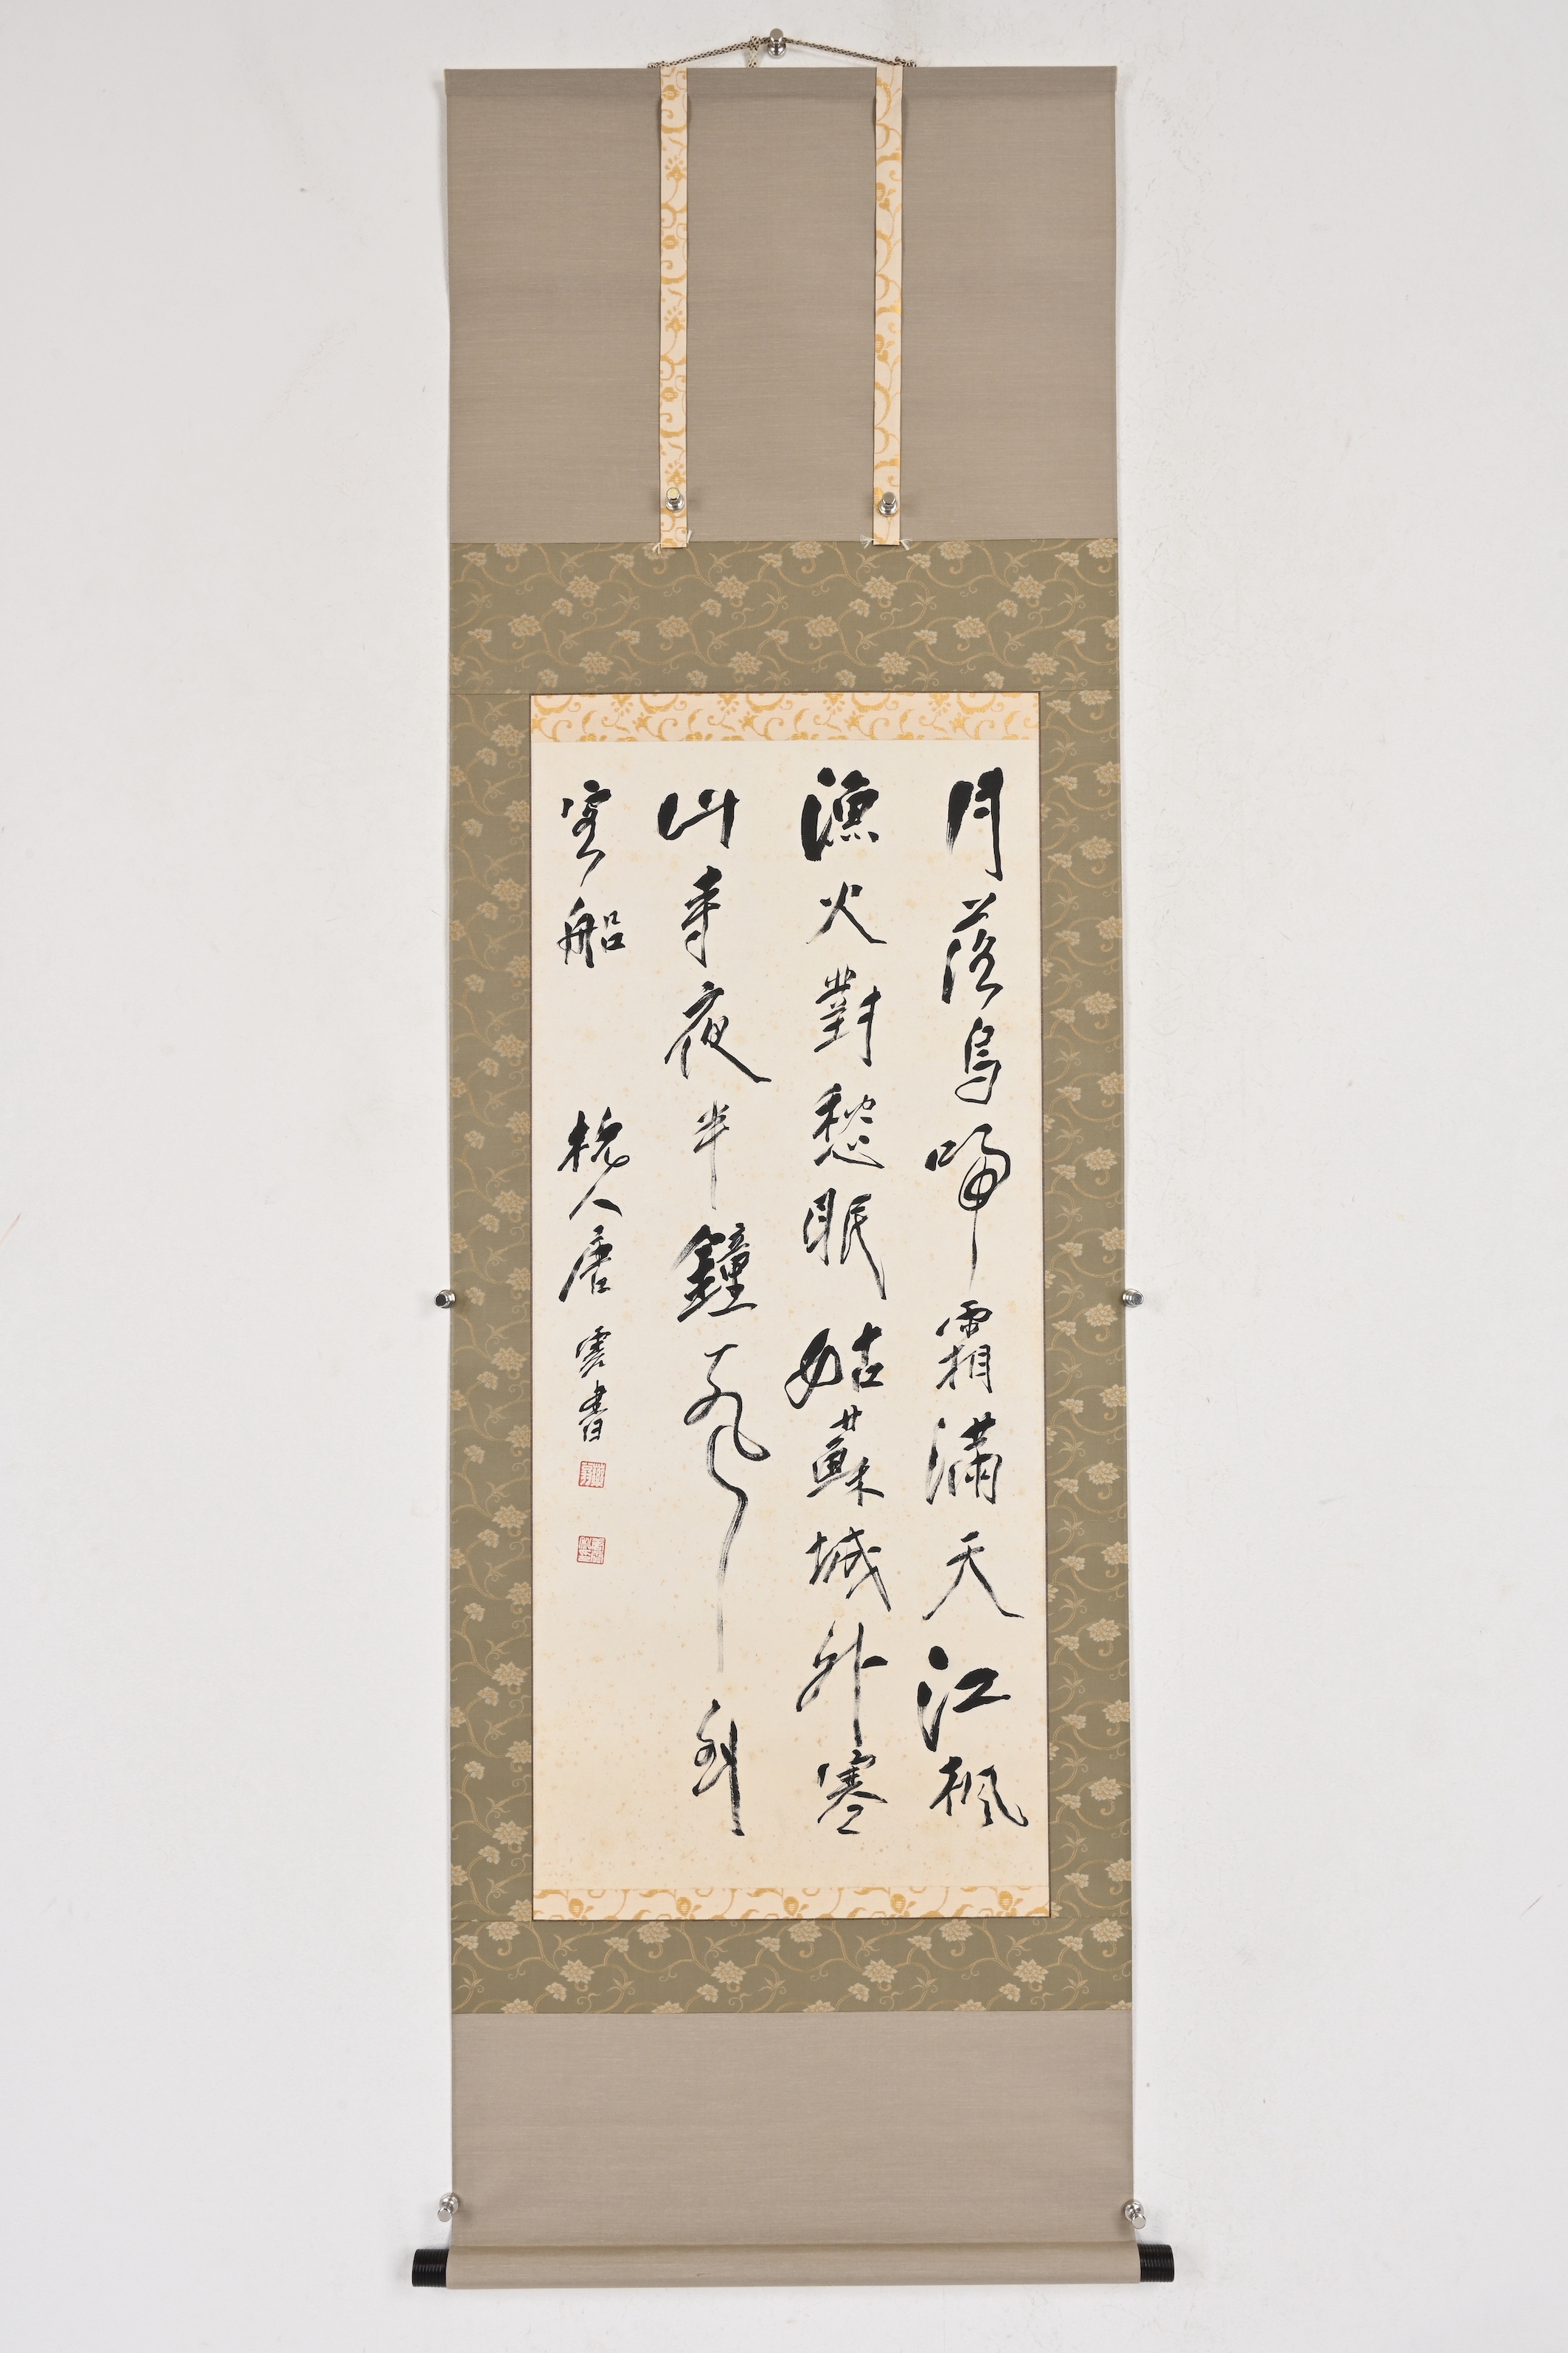 月落烏啼霜滿天江楓
漁火對愁眠姑蘇城外寒
山寺夜半鐘聲到
客船 杭人唐雲書